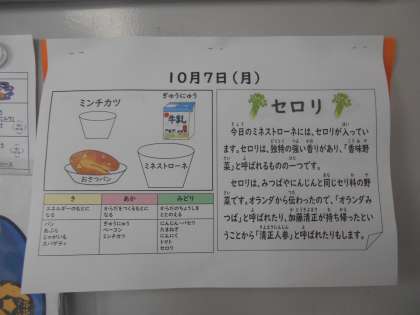 10月7日(月)
ミンチカツ
ぎゅうにゅう
牛乳
おさつパン
ミネストローネ
き
あか
みどり
エネルギーのもとに
なる
からだをつくるもとに
なる
からだのちょうしを
ととのえる
パン
あぶら
じゃがいも
スパゲティ
ぎゅうにゅう
ベーコン
ミンチカツ
にんじん パセリ
たまねぎ
にんにく
トマト
セロリ
セロリ
今日のミネストローネには、セロリが入ってい
ます。セロリは、独特の強い香りがあり、「香味野
菜」と呼ばれるものの一つです。
セロリは、みつばやにんじんと同じセリ科の野
菜です。オランダから伝わったので、「オランダみ
つば」と呼ばれたり、加藤清正が持ち帰ったとい
うことから「清正人参」と呼ばれたりもします。